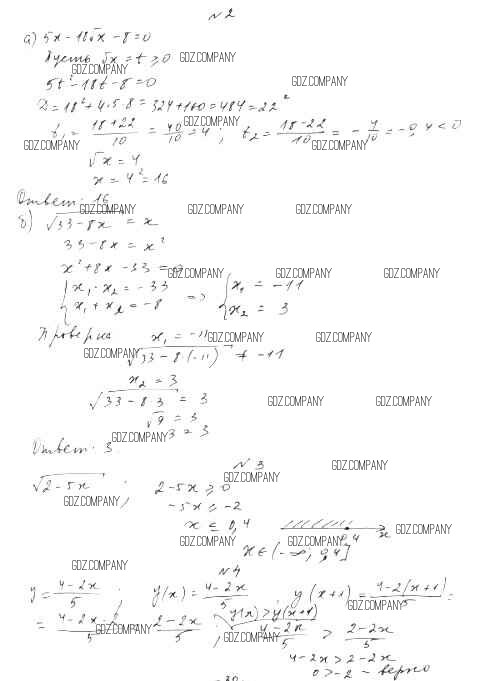 №2
а) 5x - 18√x - 8 = 0
Пусть √x = t ≥ 0 GDZ.COMPANY
GDZ.COMPANY
5t² - 18t - 8 = 0 GDZ.COMPANY
D = 18² + 4·5·8 = 324 + 160 = 484 = 22²
GDZ.COMPANY
t₁ = (18+22)/10 = 40/10 = 4; t₂ = (18-22)/10 = -4/10 = -0,4 < 0
GDZ.COMPANY GDZ.COMPANY
√x = 4
x = 4² = 16
Ответ: 16
GDZ.COMPANY GDZ.COMPANY GDZ.COMPANY
б) √(33-8x) = x
33-8x = x²
x² + 8x - 33 = 0
GDZ.COMPANY GDZ.COMPANY GDZ.COMPANY
{ x₁·x₂ = -33 => { x₁ = -11
x₁ + x₂ = -8 x₂ = 3
Проверка: x₁ = -11 GDZ.COMPANY GDZ.COMPANY
GDZ.COMPANY √(33-8·(-11)) ≠ -11
x₂ = 3
√(33-8·3) = 3 GDZ.COMPANY GDZ.COMPANY
√9 = 3
GDZ.COMPANY 3 = 3
Ответ: 3.
№3 GDZ.COMPANY
GDZ.COMPANY
√(2-5x); 2-5x ≥ 0
GDZ.COMPANY -5x ≥ -2
x ≤ 0,4 0,4 x GDZ.COMPANY
GDZ.COMPANY GDZ.COMPANY
x ∈ (-∞; 0,4]
GDZ.COMPANY №4
y = (4-2x)/5; y(x) = (4-2x)/5; y(x+1) = (4-2(x+1))/5 =
GDZ.COMPANY
= (4-2x-2)/5 = (2-2x)/5; y(x) > y(x+1)
GDZ.COMPANY GDZ.COMPANY
(4-2x)/5 > (2-2x)/5
4-2x > 2-2x
0 > -2 - верно